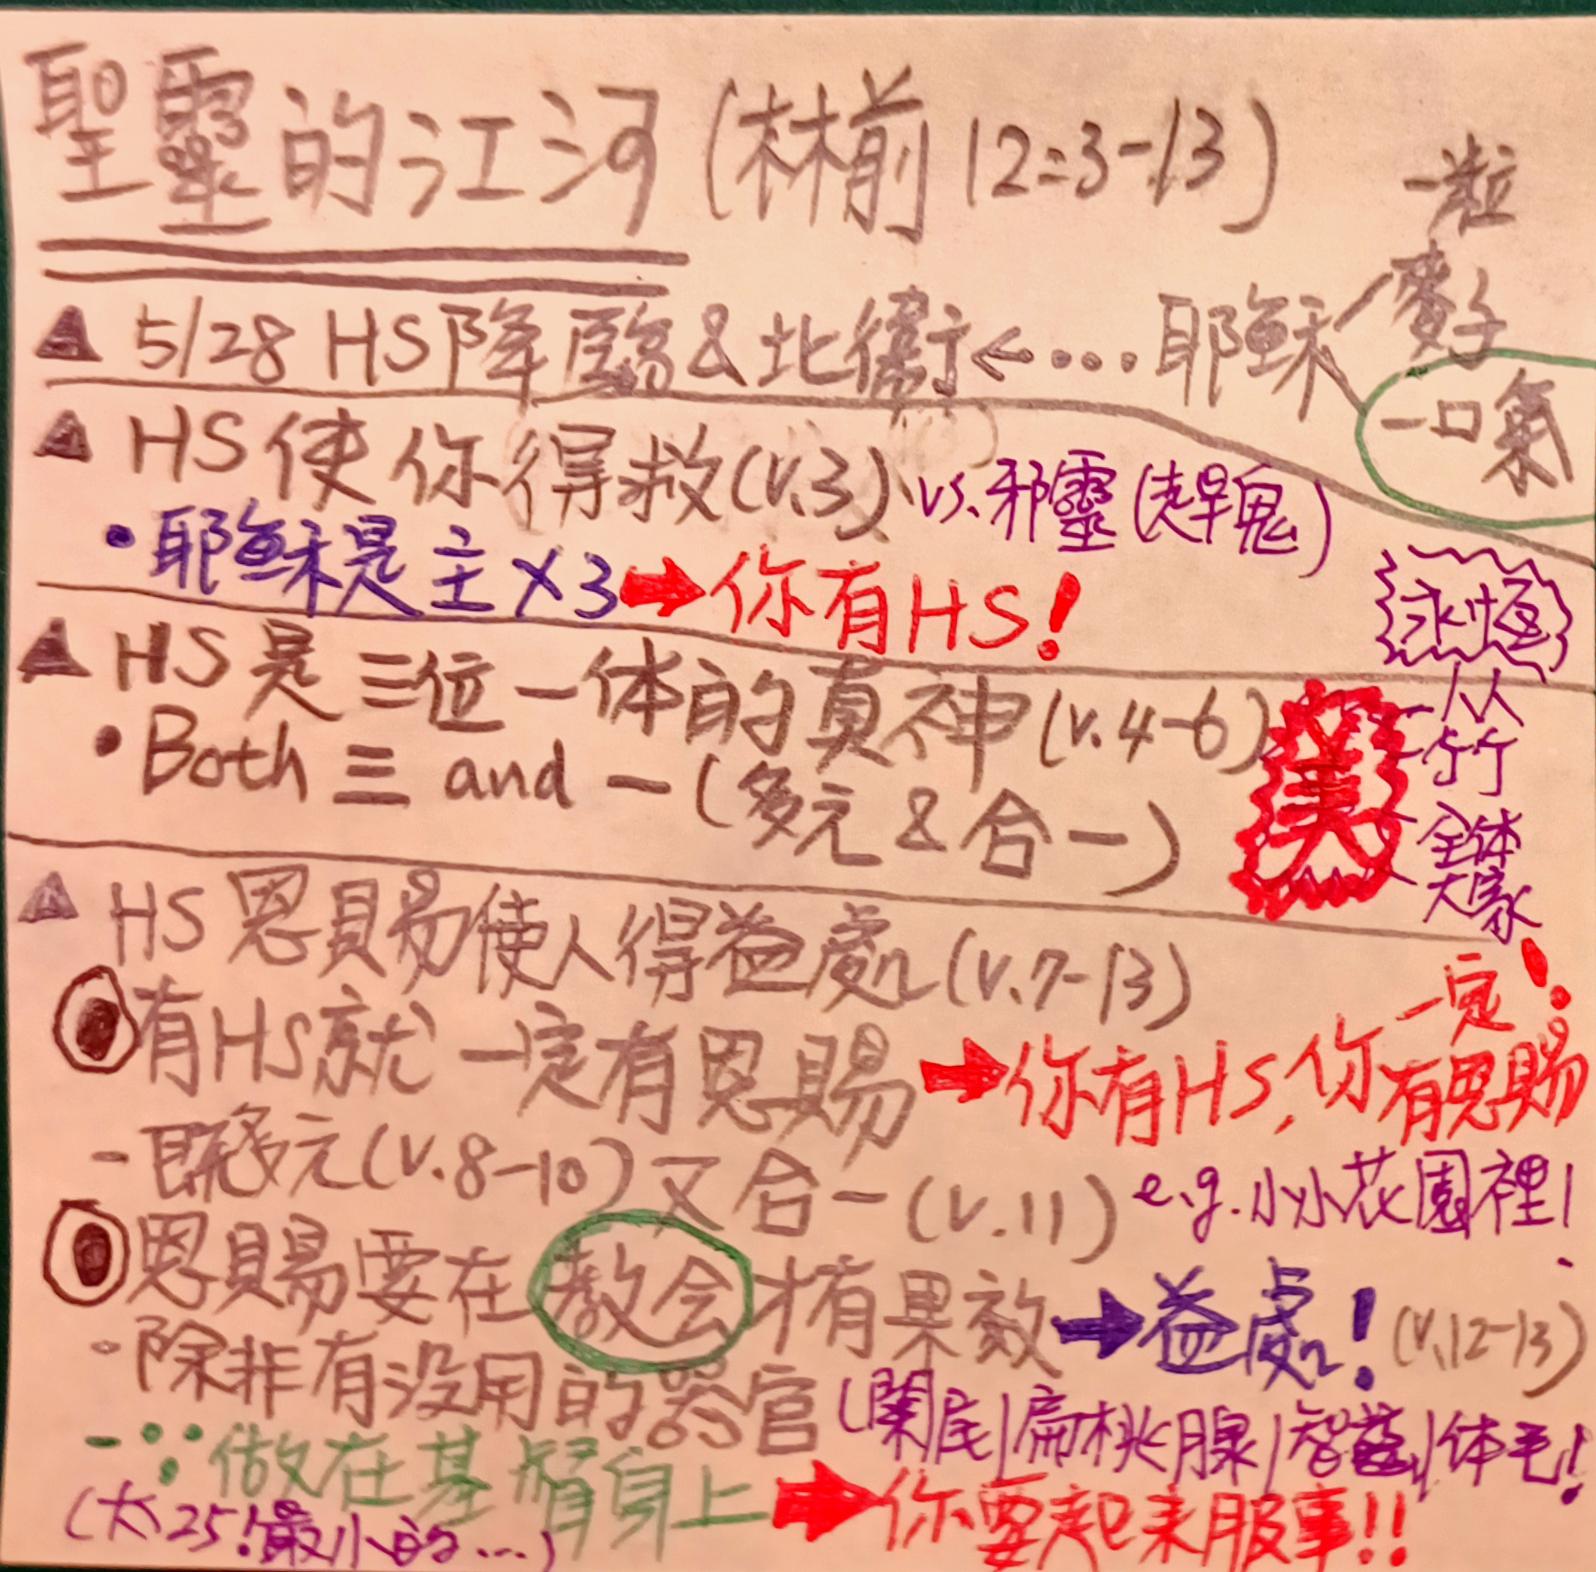 聖靈的江河 (林前 12:3-13)
一粒
麥子
▲ 5/28 HS降臨&北衞 <···· 耶穌
一口氣
▲ HS使你得救(v.3) vs.邪靈(趕鬼)
• 耶穌是主×3 ➡ 你有HS!
永恆
▲ HS是三位一体的真神(v.4-6)
美
人人
行行
全体
大家
• Both 三 and 一 (多元&合一)
▲ HS恩賜使人得益處(v.7-13)
有HS就一定有恩賜 ➡ 你有HS,你一定有恩賜!
- 既多元(v.8-10)又合一(v.11) e.g.小小花園裡!
恩賜要在教会才有果效 ➡ 益處! (v.12-13)
- 除非有没用的器官 (闌尾/扁桃腺/智齒/体毛!)
- ∵做在基督身上 ➡ 你要起來服事!!
(太25!最小的...)